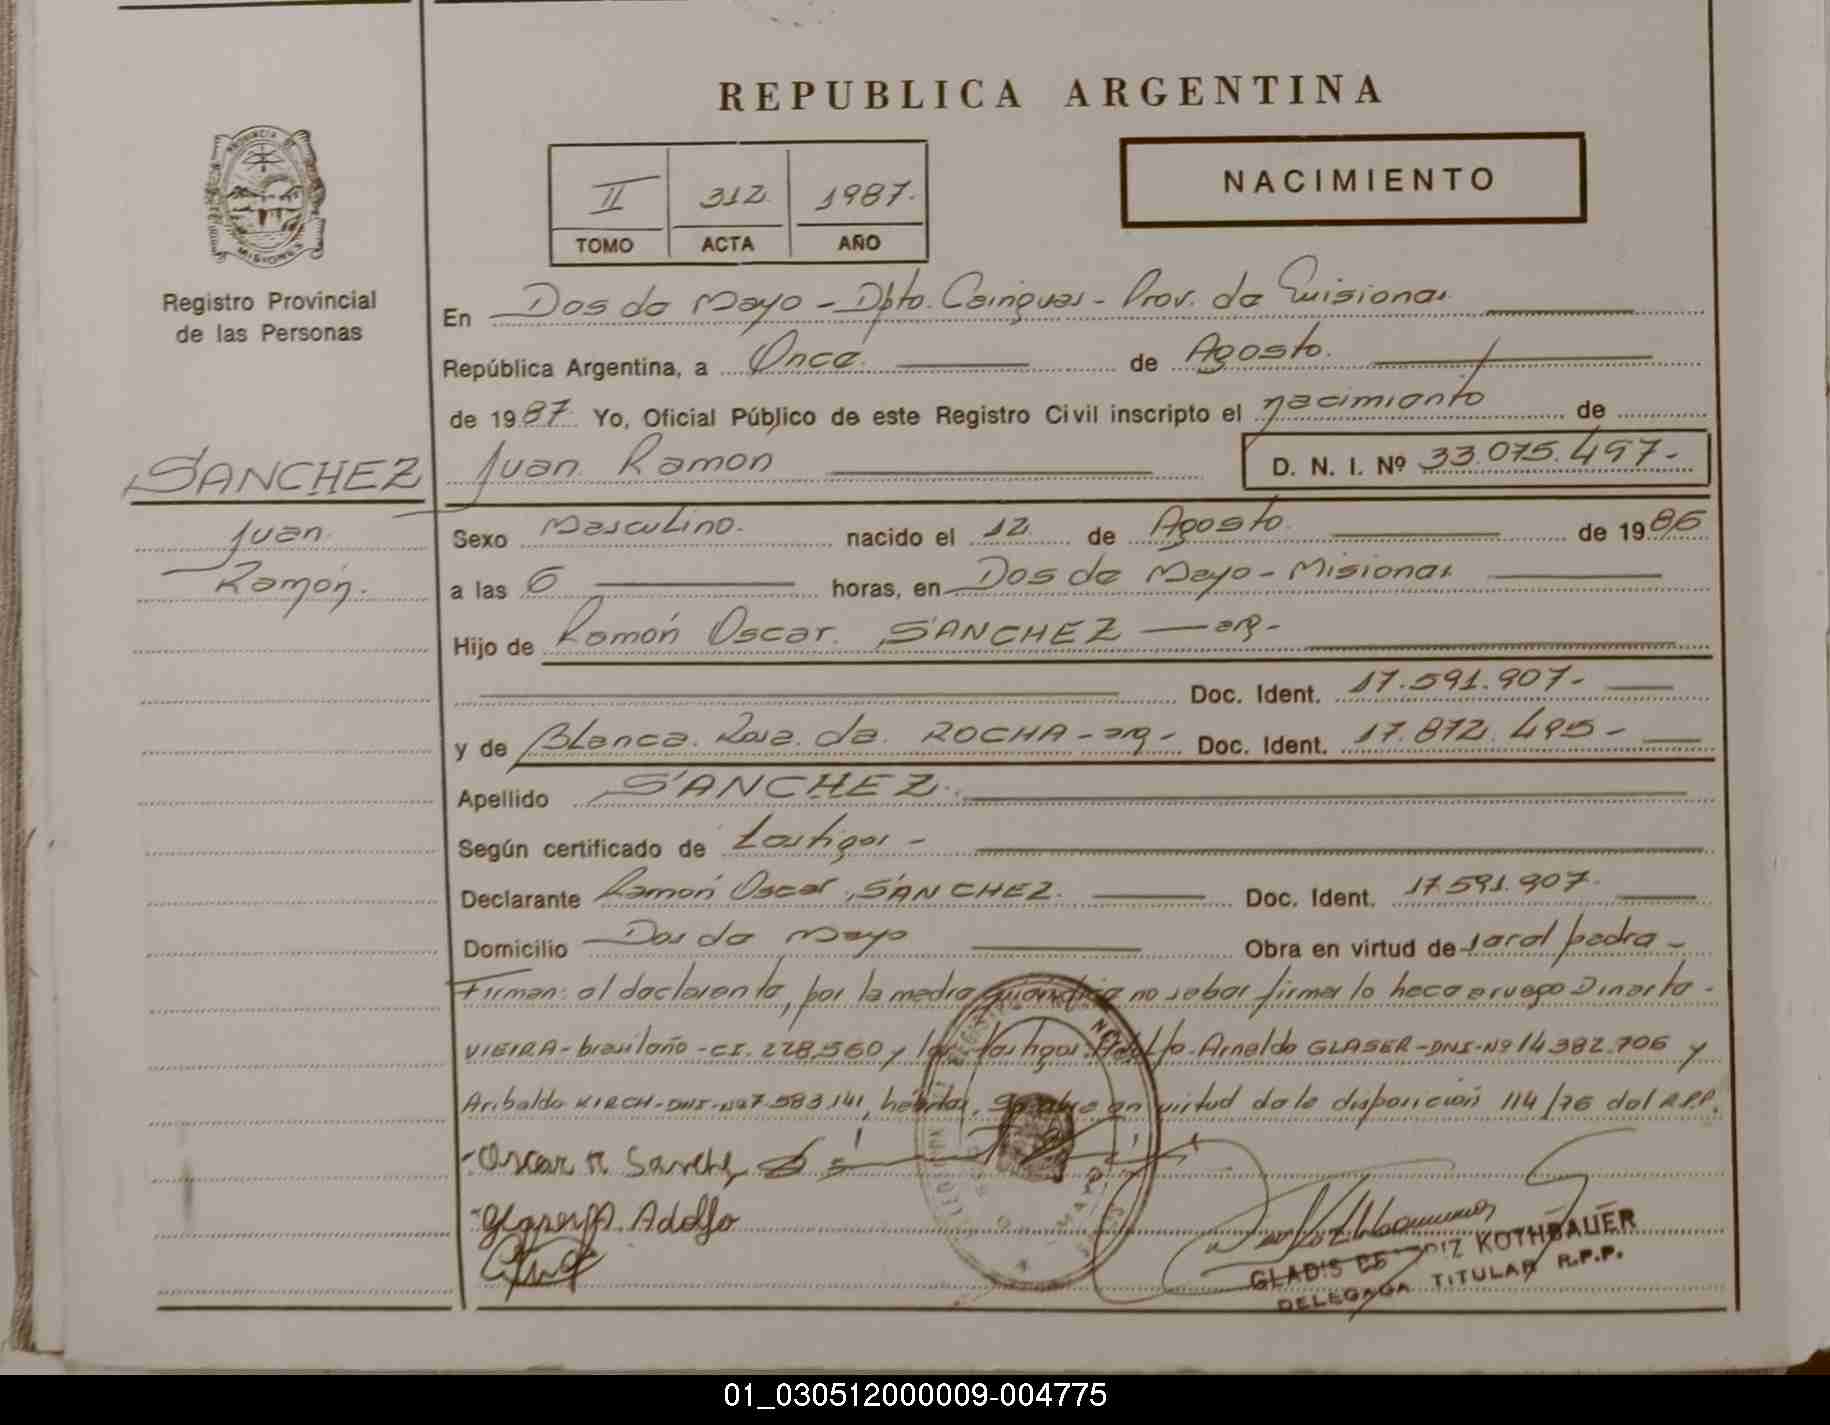 REPUBLICA ARGENTINA
PROVINCIA DE
MISIONES
Registro Provincial
de las Personas
II 312 1987.
TOMO ACTA AÑO
NACIMIENTO
En Dos de Mayo - Dpto. Cainguas - Prov. de Misiones
República Argentina, a Once de Agosto.
de 1987. Yo, Oficial Público de este Registro Civil inscripto el nacimiento de
SANCHEZ
Juan Ramon
D. N. I. Nº 33.075.497-
Juan
Ramón.
Sexo Masculino. nacido el 12 de Agosto. de 1986
a las 6 horas, en Dos de Mayo - Misiones
Hijo de Ramón Oscar. SANCHEZ — arg-
Doc. Ident. 17.591.907-
y de Blanca. Rosa. da. ROCHA - arg - Doc. Ident. 17.872.495-
Apellido SANCHEZ.
Según certificado de testigos -
Declarante Ramón Oscar, SANCHEZ. Doc. Ident. 17.591.907.
Domicilio Dos de Mayo Obra en virtud de ser el padre -
Firman: el declarante, por la madre no saber firmar lo hece a ruego Dinarte -
VIEIRA - brasileño - C.I. 228.560 y los testigos. Adolfo. Arnaldo GLASER - DNI - Nº 14.382.706 y
Aribaldo KIRCH - DNI - Nº 7.583.141, hábiles. Se en virtud de la disposición 114/76 del R.P.P.
- Oscar R Sanchez
Adolfo
GLADIS DE KOTHBAUER
DELEGADA TITULAR R.P.P.
01_030512000009-004775